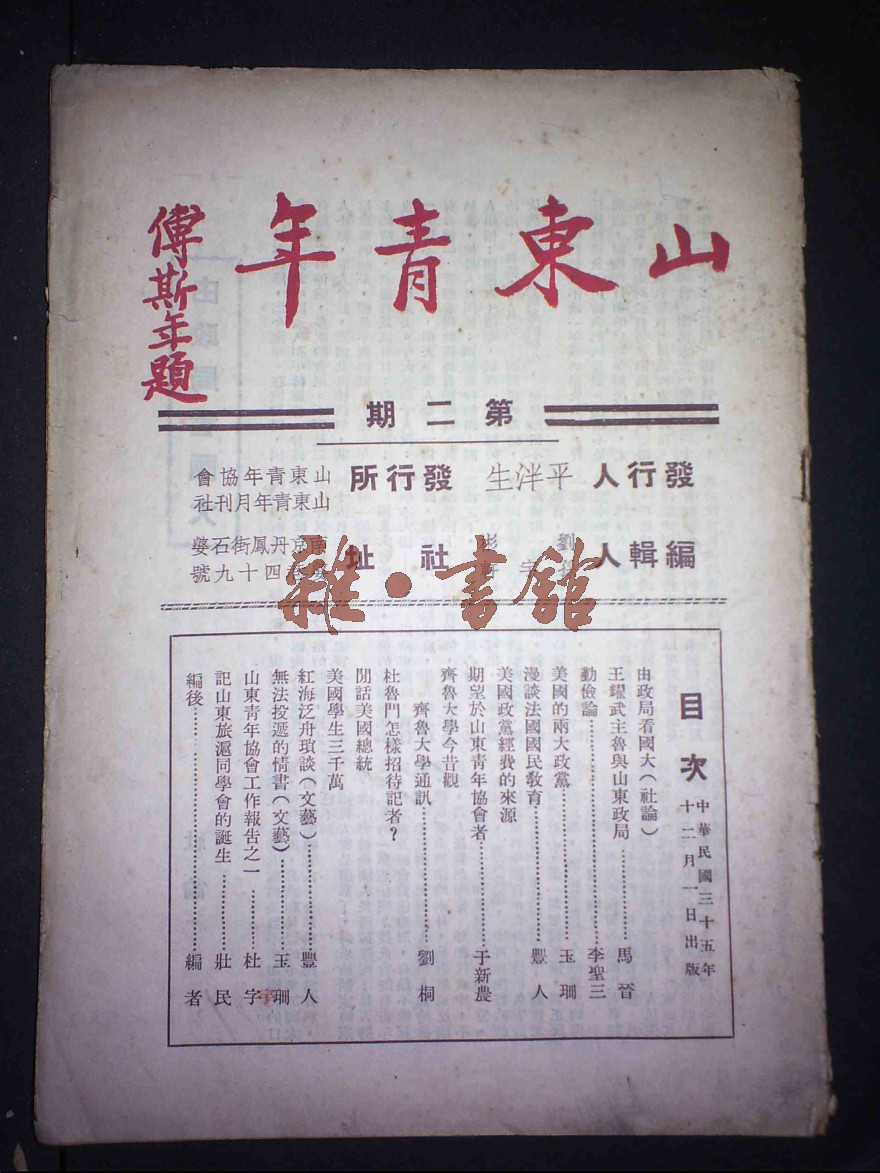 山東青年
傅斯年題
第二期
發行人 平泮生
發行所 山東青年協會
山東青年月刊社
編輯人 劉
社址 南京丹鳳街石婆
四十九號
雜·書館
目次
中華民國三十五年
十二月一日出版
由政局看國大(社論)
王耀武主魯與山東政局……馬晉
勤儉論……李聖三
美國的兩大政黨……玉珊
漫談法國國民教育……豐人
美國政黨經費的來源
期望於山東青年協會者……于新農
齊魯大學今昔觀
齊魯大學通訊……劉桐
杜魯門怎樣招待記者?
閒話美國總統
美國學生三千萬
紅海泛舟瑣談(文藝)……豐人
無法投遞的情書(文藝)……玉珊
山東青年協會工作報告之一……杜字
記山東旅滬同學會的誕生……壯民
編後……編者